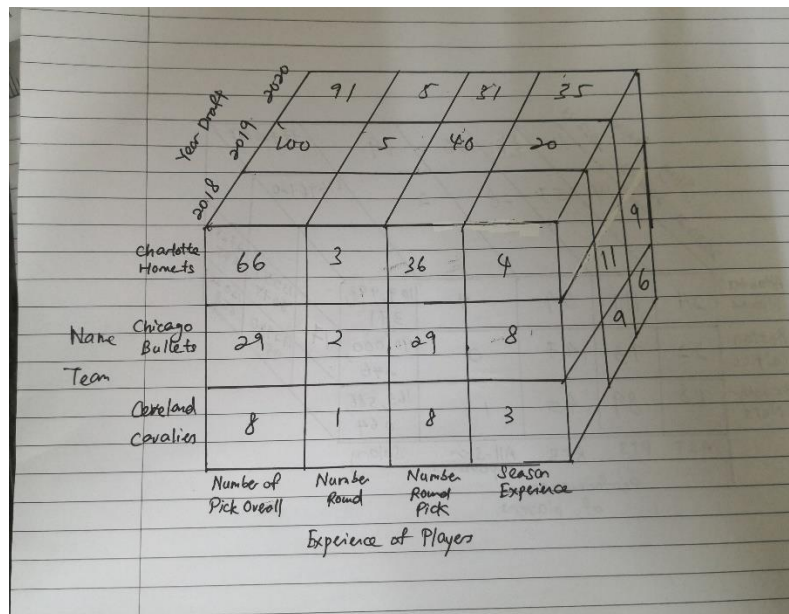 Year Draft
2020 91 5 31 35
2019 100 5 40 20
2018
Charlotte
Hornets 66 3 36 4
9
11
Name Chicago
Team Bullets 29 2 29 8
6
9
Cleveland
Cavaliers 8 1 8 3
Number of Pick Overall
Number Round
Number Round Pick
Season Experience
Experience of Players